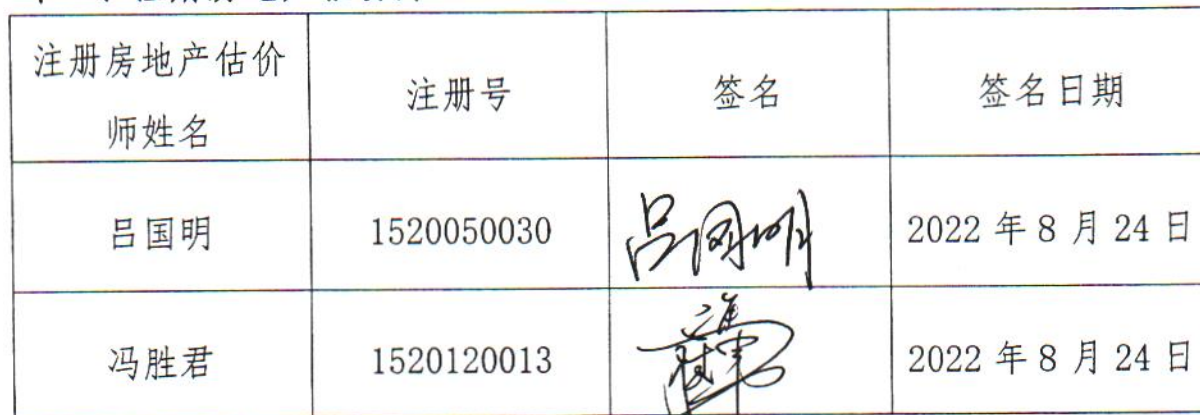 注册房地产估价
师姓名
注册号
签名
签名日期
吕国明
1520050030
吕国明
2022 年 8 月 24 日
冯胜君
1520120013
2022 年 8 月 24 日